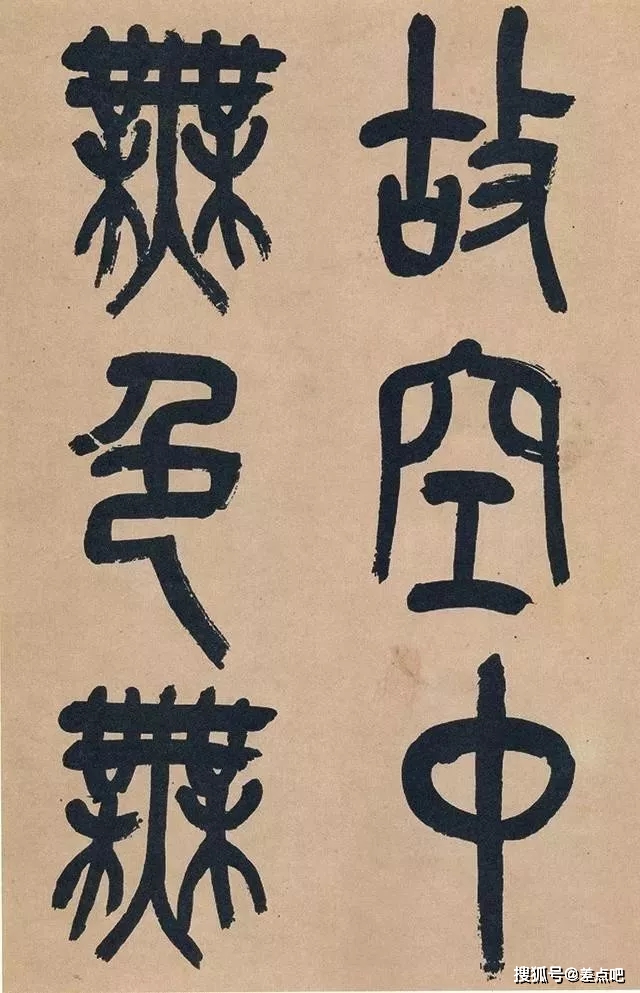 故空中
無色無
搜狐号@差点吧